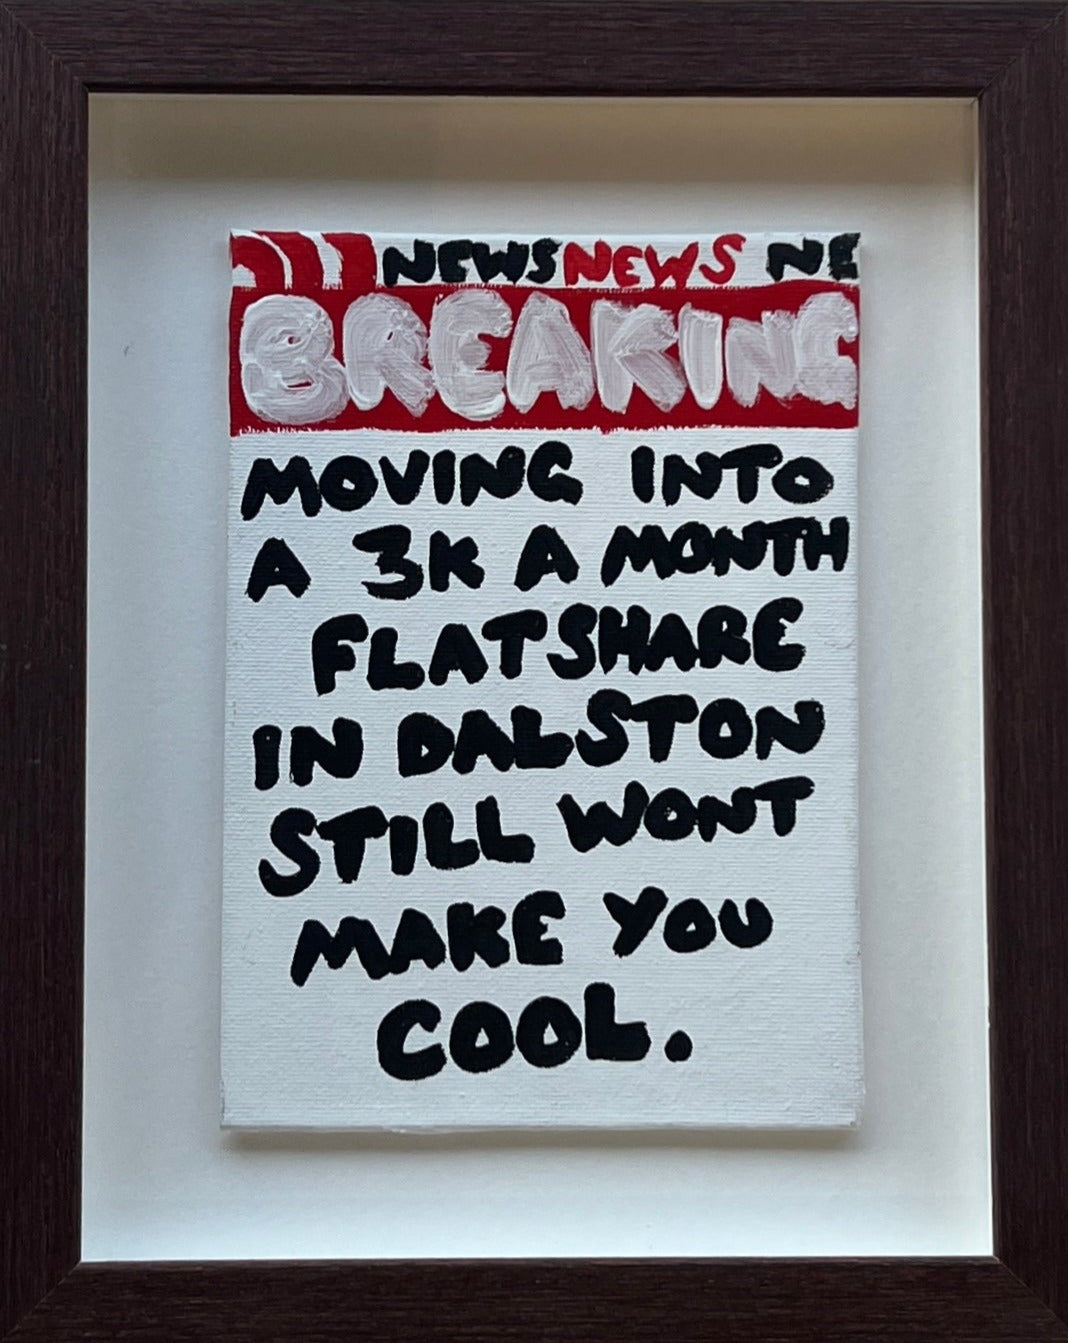 NEWS NEWS NE
BREAKING
MOVING INTO
A 3K A MONTH
FLATSHARE
IN DALSTON
STILL WONT
MAKE YOU
COOL.